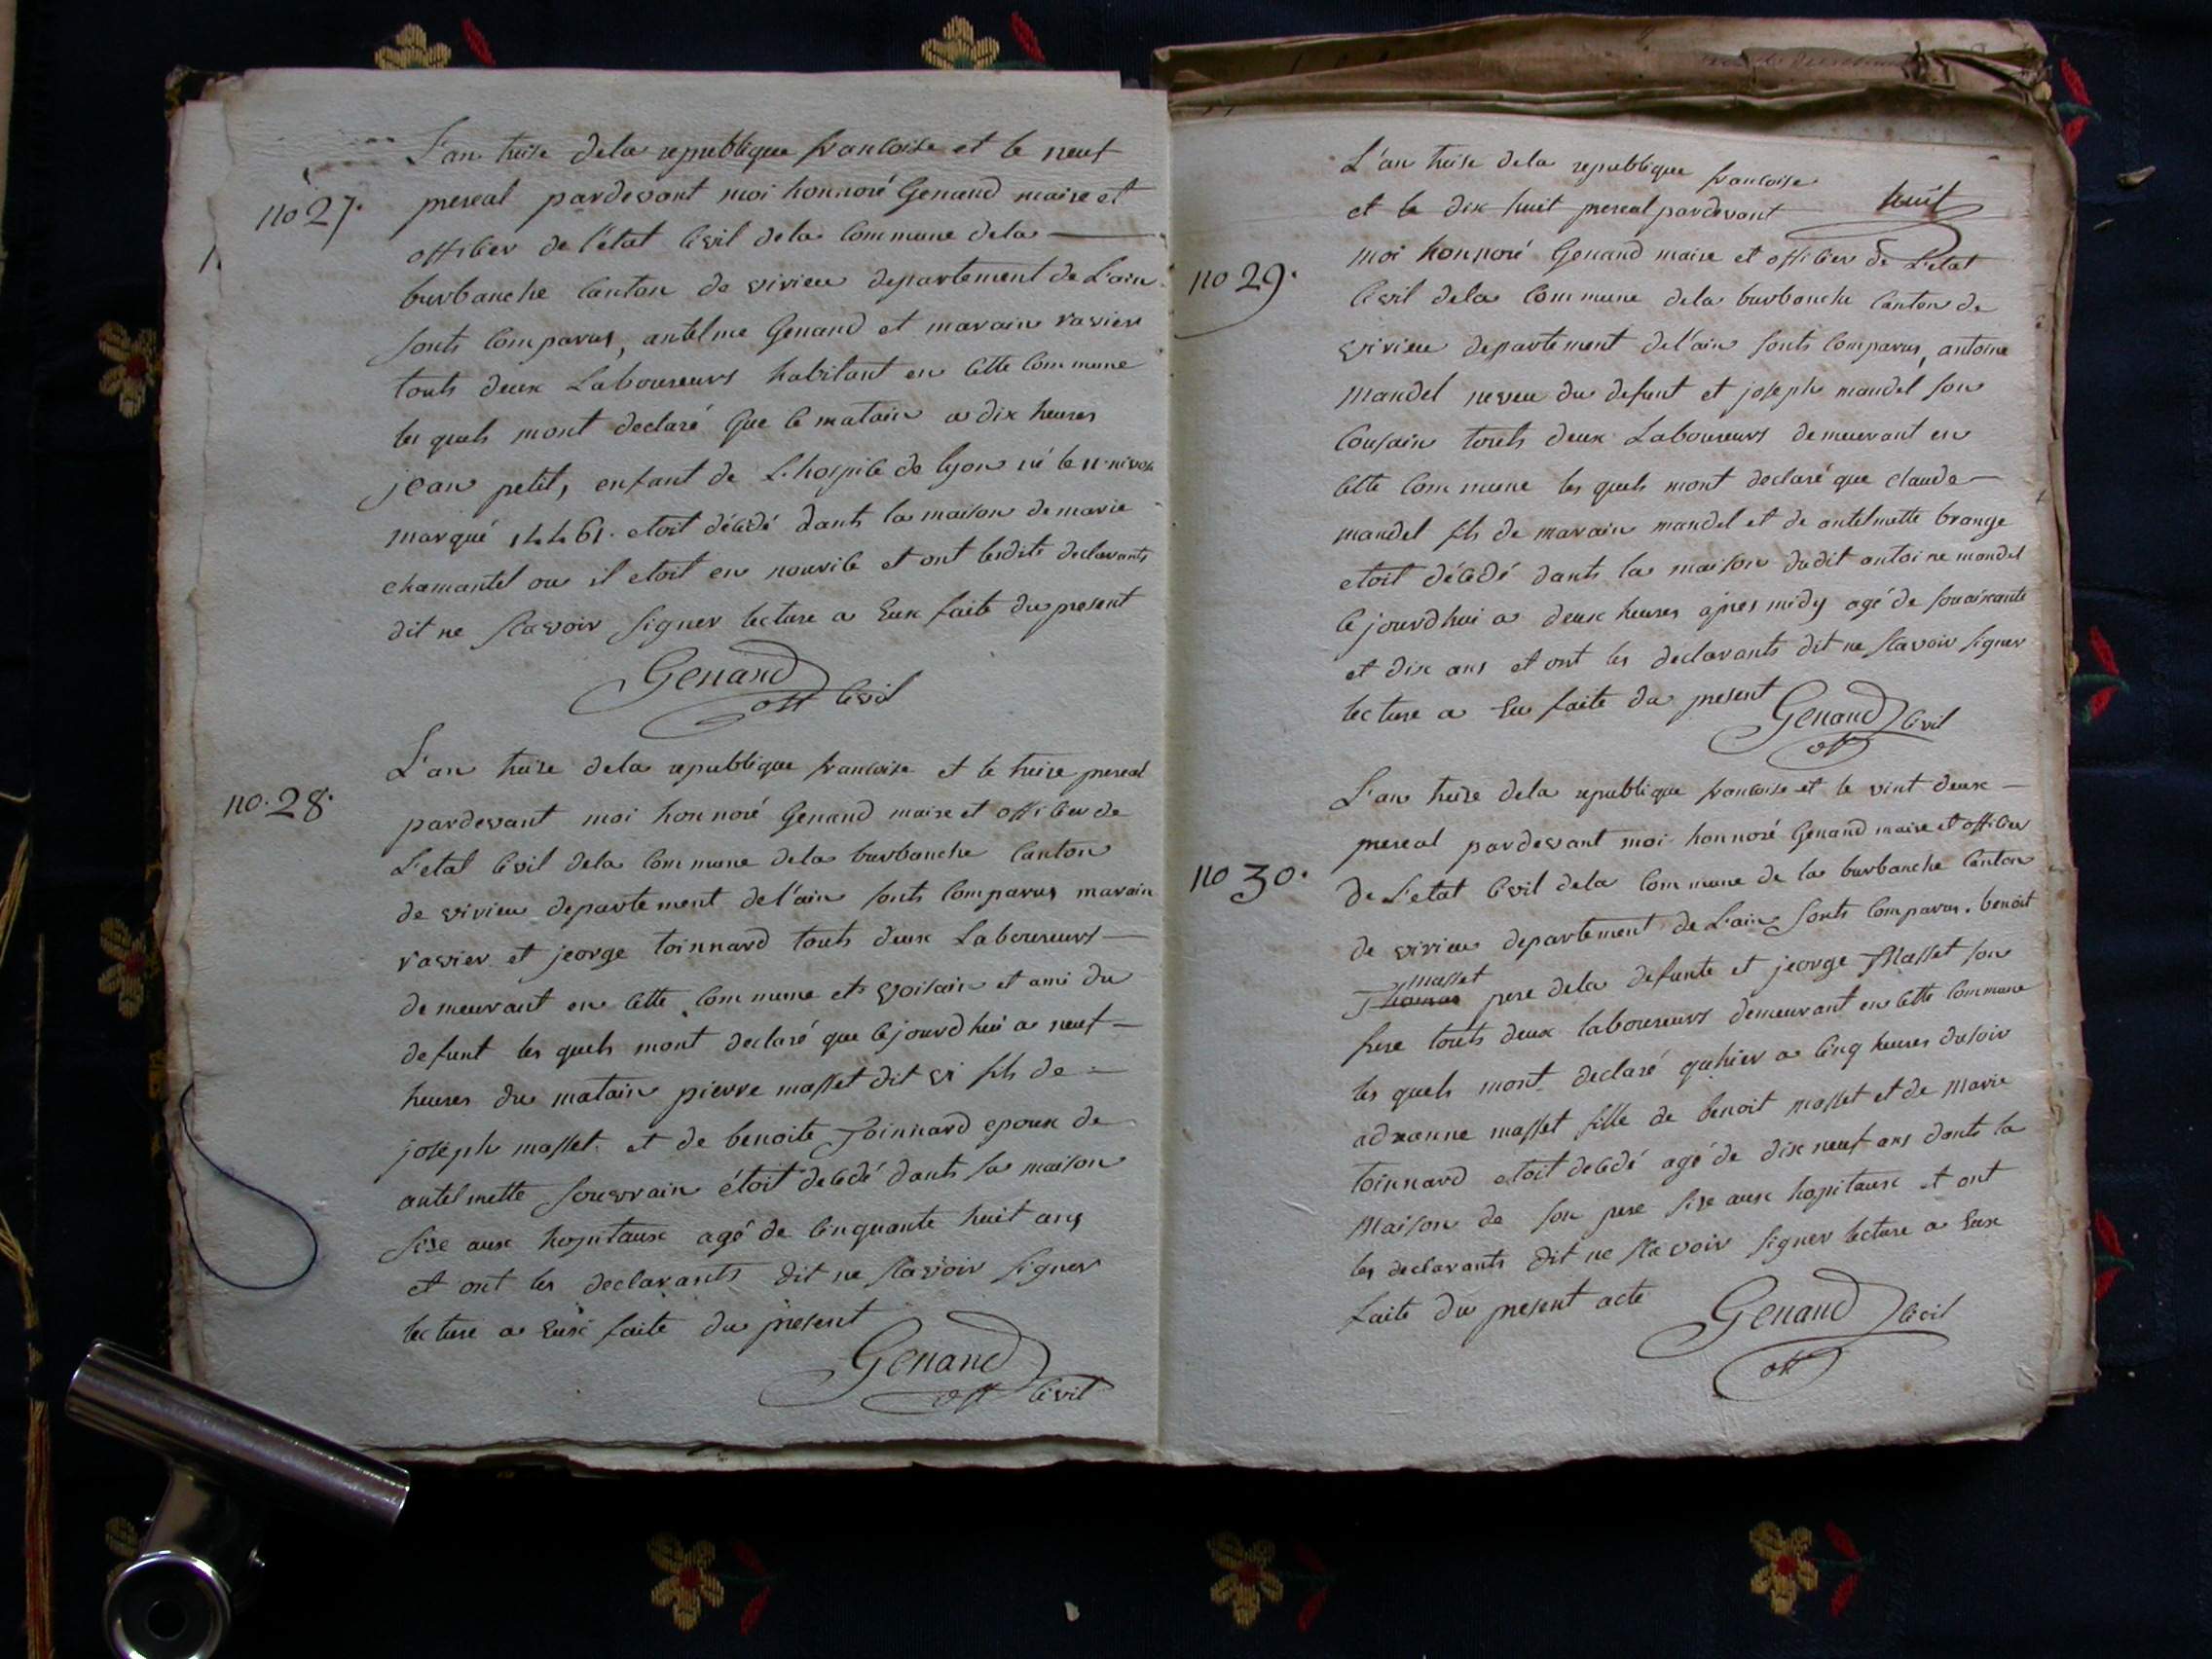 L'an treise dela republique francoise et le neuf
no 27. prereal pardevant moi honnoré Genand maire et
officier de l'état civil dela commune dela
burbanche canton de virieu departement de L'ain
sonts comparus, antelme Genand et marain ravier
touts deux Laboureurs habitant en cette commune
les quels mont declaré que ce matain a dix heures
jean petit, enfant de L'hospice de lyon né le 11 nivose
marqué 14461. etoit décédé dants la maison de marie
chamantel ou il etoit en nourice et ont lesdits declarants
dit ne scavoir signer lecture a Eux faite du present
Genand
off civil
L'an treise dela republique francoise et le treise prereal
no. 28. pardevant moi honnoré Genand maire et officier de
L'etat civil dela commune dela burbanche canton
de virieu departement de l'ain sonts comparus marain
ravier et jeorge toinnard touts deux Laboureurs
demeurant en cette commune et voisain et ami du
defunt les quels mont declaré que cejourdhui a neuf
heures du matain pierre masset dit vi fils de
joseph masset et de benoite Toinnard epoux de
antelmette souvrain étoit decedé dants sa maison
sise aux hopitaux agé de cinquante huit ans
et ont les declarants dit ne scavoir signer
lecture a Eux faite du present
Genand
off civil
L'an treise dela republique francoise
et le dix huit prereal pardevant huit
moi honnoré Genand maire et officier de L'etat
no 29. civil dela commune dela burbanche canton de
virieu departement de l'ain sonts comparus, antoine
mandel neveu du defunt et joseph mandel son
cousain touts deux Laboureurs demeurant en
cette commune les quels mont declaré que claude
mandel fils de marain mandel et de antelmette brange
etoit décédé dants la maison dudit antoine mandel
cejourdhui a deux heures apres midy agé de souaixante
et dix ans et ont les declarants dit ne scavoir signer
lecture a Eu faite du present
Genand civil
off
L'an treise dela republique francoise et le vint deux
prereal pardevant moi honnoré Genand maire et officier
no 30. de L'etat civil dela commune de la burbanche canton
de virieu departement de L'ain sonts comparus. benoit
masset
pere dela defunte et jeorge Masset son
frere touts deux laboureurs demeurant en cette commune
les quels mont declaré quhier a cinq heures dusoir
adrianne masset fille de benoit masset et de Marie
toinnard etoit decedé agé de dix neuf ans dants la
Maison de son pere sise aux hopitaux et ont
les declarants dit ne scavoir signer lecture a Eux
faite du present acte
Genand civil
off